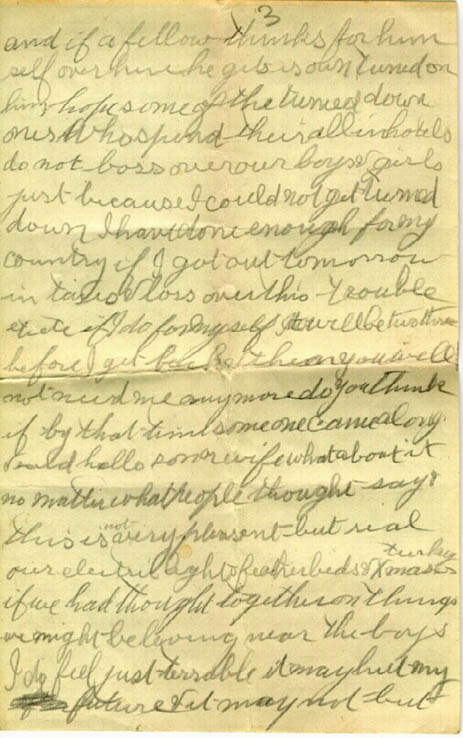 3
and if a fellow thinks for him
self over here he gets is own turned on
him hope some of the turned down
ones who spend their all in hotels
do not boss over our boys & girls
just because I could not get turned
down I have done enough for my
country if I got out tomorrow
in taxes & loss over this trouble
if I do for myself it will be two three
before I get back then you will
not need me any more do you think
if by that time someone came along
could hello some wife what about it
no matter what people thought - say
this is not very plesent but real
our electric lights feather beds & turkey Xmases
if we had thought together on things
we might be living near the boys
I do feel just terrable it may hurt my
future & it may not but